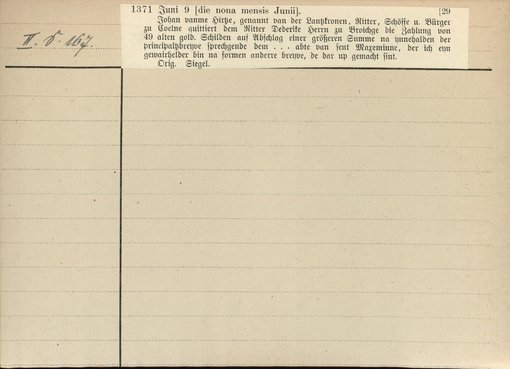 1371 Juni 9 [die nona mensis Junii]. [29
Johan vamme Hirtze, genannt van der Lantzkronen, Ritter, Schöffe u. Bürger
zu Coelne quittiert dem Ritter Dederike Herrn zu Broichge die Zahlung von
49 alten gold. Schilden auf Abschlag einer größeren Summe na ynnehalden der
principaltzbreyve sprechgende dem . . . abte van sent Maxeminne, der ich eyn
gewairhelder bin na formen anderre breyve, de dar up gemacht sint.
Orig. Siegel.
II. S. 167.